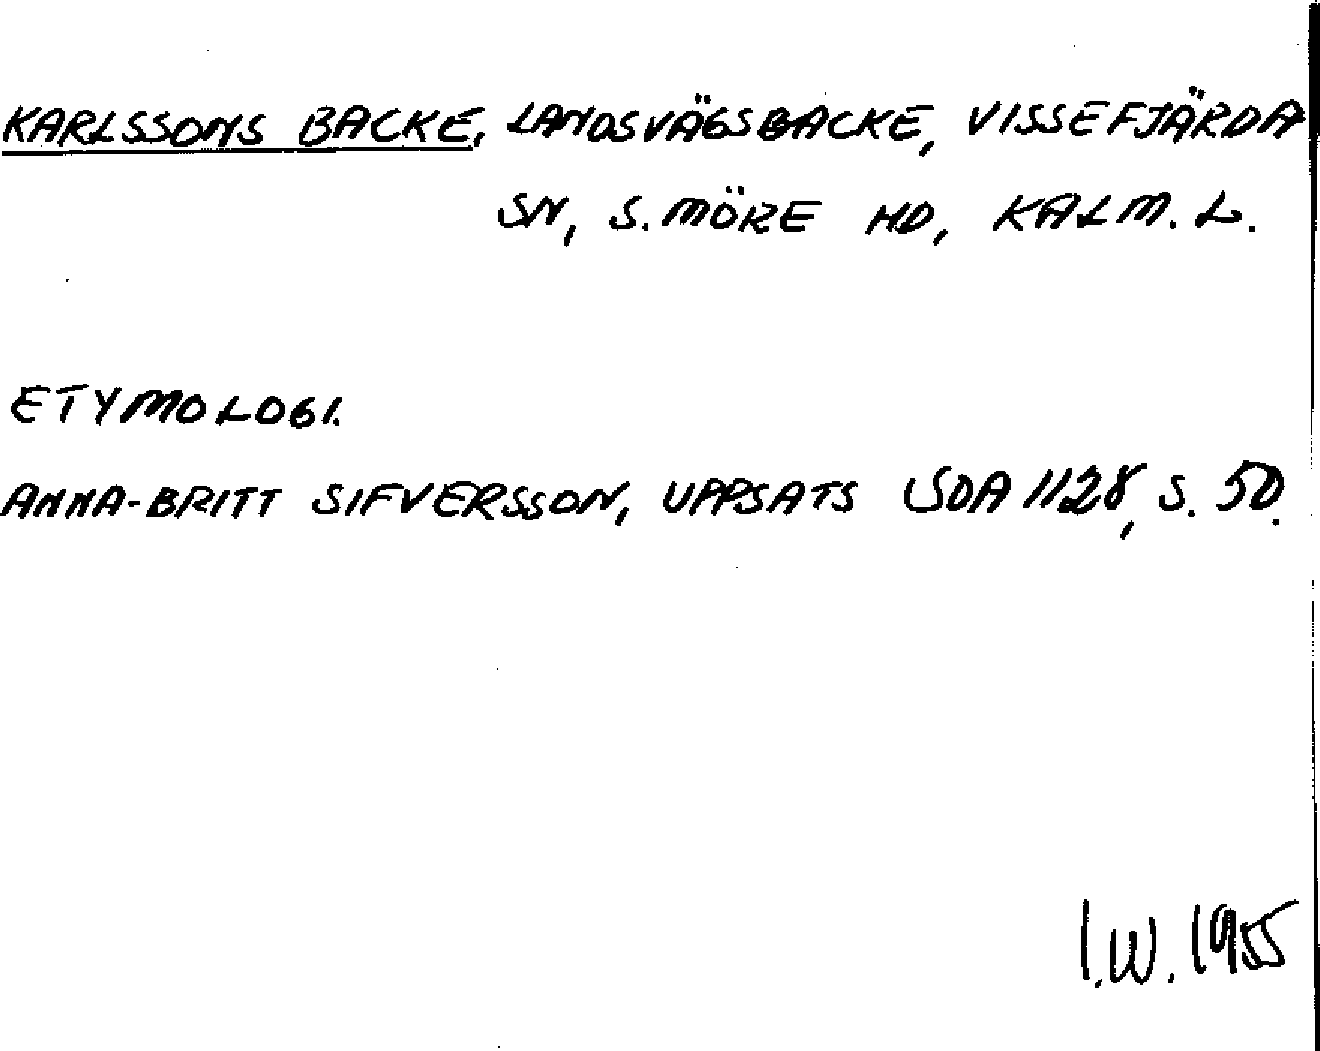 KARLSSONS BACKE, LANDSVÄGSBACKE, VISSEFJÄRDA
SN, S. MÖRE HD, KALM. L.
ETYMOLOGI.
ANNA-BRITT SIFVERSSON, UPPSATS SOA 1128, S. 50.
I.W. 1955